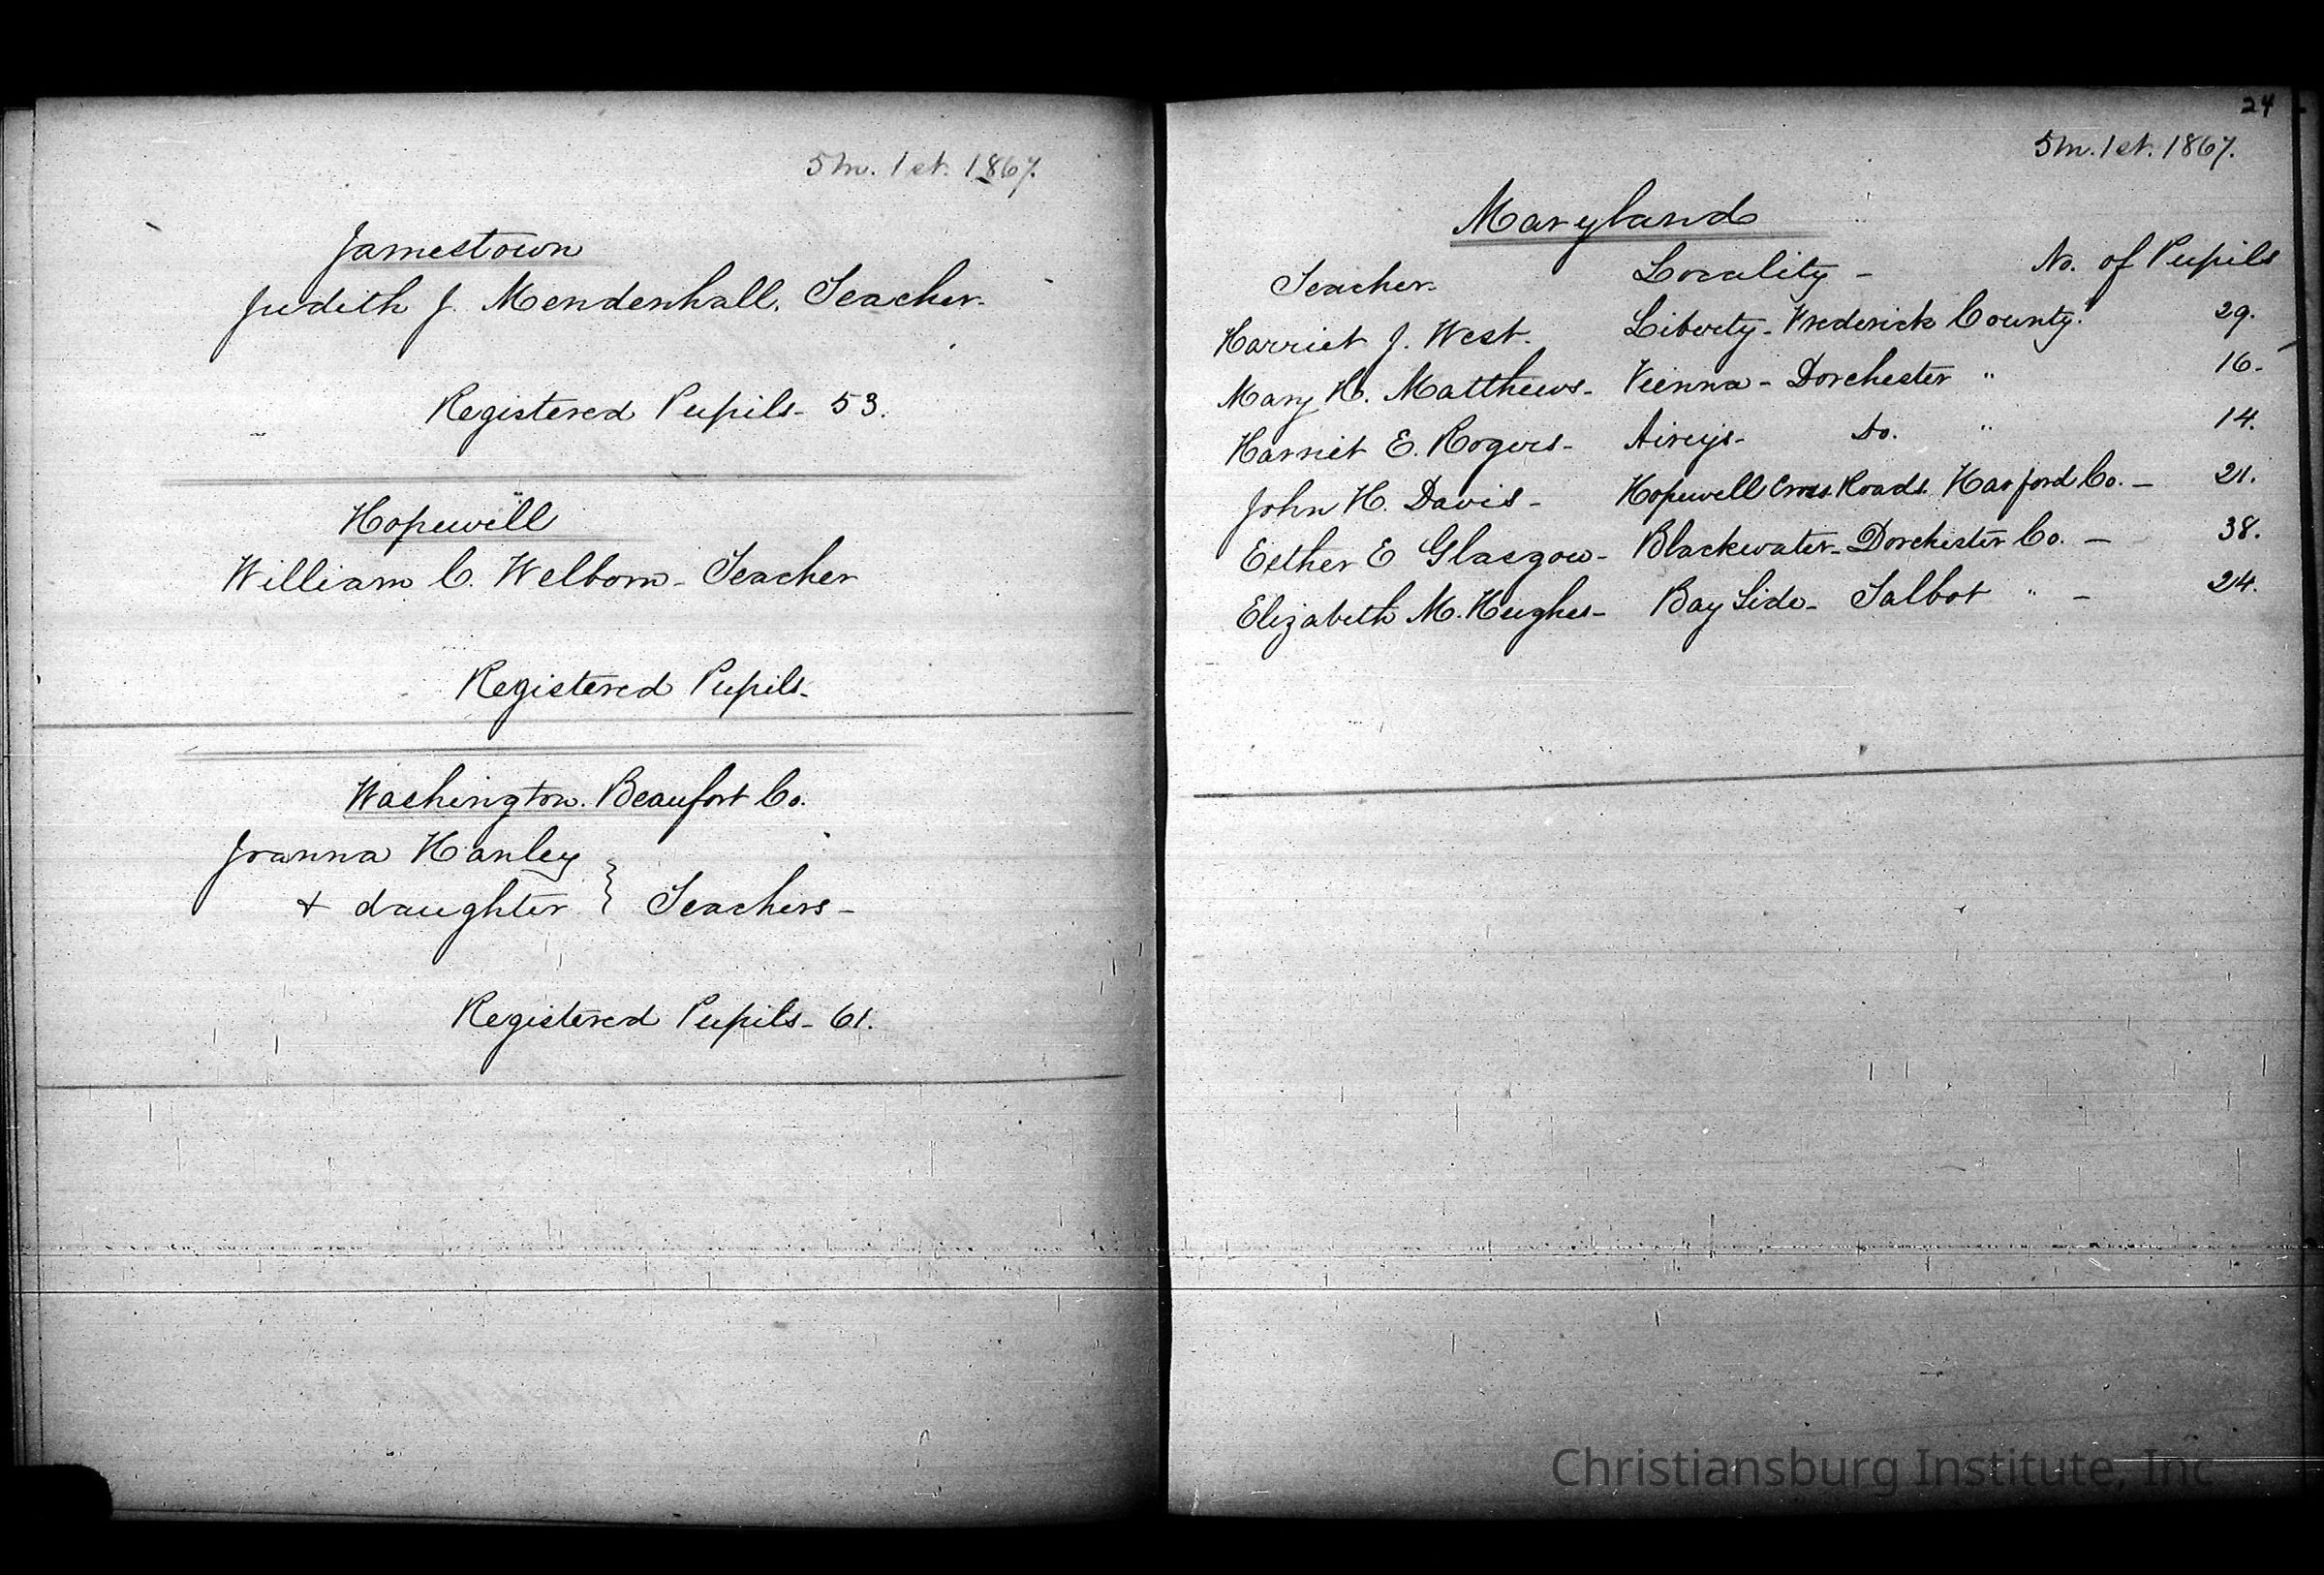 5 m. 1st. 1867.
Jamestown
Judith J. Mendenhall. Teacher.
Registered Pupils - 53.
Hopewell
William C. Welborn - Teacher
Registered Pupils -
Washington. Beaufort Co.
Joanna Hanley
& daughter } Teachers -
Registered Pupils - 61.
24
5 m. 1st. 1867.
Maryland
Teacher. Locality - No. of Pupils
Harriet J. West. Liberty - Frederick County. 29.
Mary H. Matthews - Vienna - Dorchester " 16.
Harriet E. Rogers - Aireys - Do. " 14.
John H. Davis - Hopewell Cross Roads. Harford Co. - 21.
Esther E Glasgow - Blackwater - Dorchester Co. - 38.
Elizabeth M. Hughes - Bay Side - Talbot " - 24.
Christiansburg Institute, Inc